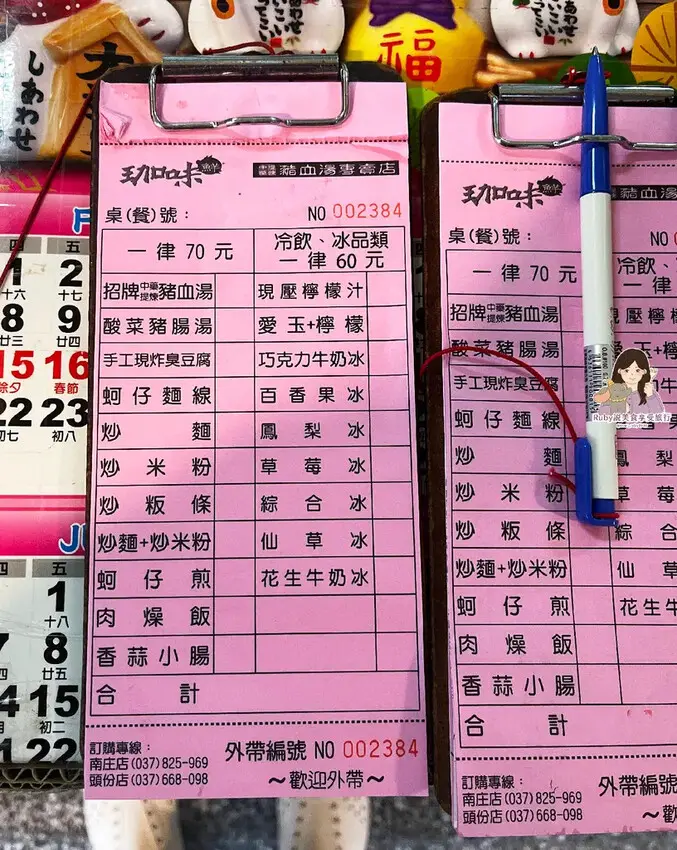 しあわせ
大
しあわせ
こいこい
福
珈味
魚羊
中藥提煉 豬血湯專賣店
桌(餐)號：
NO 002384
一律 70 元
冷飲、冰品類
一律 60 元
招牌中藥提煉豬血湯
現壓檸檬汁
酸菜豬腸湯
愛玉+檸檬
手工現炸臭豆腐
巧克力牛奶冰
蚵仔麵線
百香果冰
炒麵
鳳梨冰
炒米粉
草莓冰
炒粄條
綜合冰
炒麵+炒米粉
仙草冰
蚵仔煎
花生牛奶冰
肉燥飯
香蒜小腸
合計
訂購專線：
南庄店(037)825-969
頭份店(037)668-098
外帶編號 NO 002384
～歡迎外帶～
珈味
魚羊
豬血湯
桌(餐)號：
NO
一律 70 元
冷飲、
一律
招牌中藥提煉豬血湯
現壓檸檬
酸菜豬腸湯
愛玉+檸
手工現炸臭豆腐
蚵仔麵線
炒麵
鳳梨
炒米粉
草莓
炒粄條
綜合
炒麵+炒米粉
仙草
蚵仔煎
花生牛
肉燥飯
香蒜小腸
合計
訂購專線：
南庄店(037)825-969
頭份店(037)668-098
外帶編號
～歡
四 五
1 2
十六 十七
8 9
廿三 廿四
15 16
除夕 春節
22 23
初七 初八
四 五
1
十八
8
廿五
15
初二
22